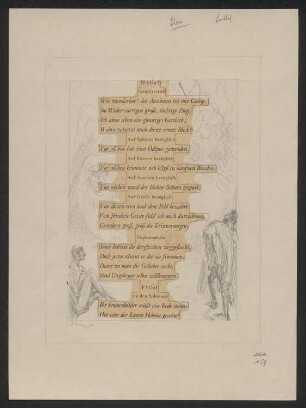 FAUST
herantretend
Wie wunderbar! das Anschaun tut mir Gnüge,
Im Widerwärtigen große, tüchtige Züge.
Ich ahne schon ein günstiges Geschick;
Wohin versetzt mich dieser ernste Blick?
Auf Sphinxe bezüglich
Vor solchen hat einst Ödipus gestanden;
Auf Sirenen bezüglich
Vor solchen krümmte sich Ulyß in hänfnen Banden;
Auf Ameisen bezüglich
Von solchen ward der höchste Schatz gespart,
Auf Greife bezüglich
Von diesen treu und ohne Fehl bewahrt.
Vom frischen Geiste fühl' ich mich durchdrungen,
Gestalten groß, groß die Erinnerungen.
Mephistopheles
Sonst hättest du dergleichen weggeflucht,
Doch jetzo scheint es dir zu frommen;
Denn wo man die Geliebte sucht,
Sind Ungeheuer selbst willkommen.
FAUST
zu den Sphinxen
Ihr Frauenbilder müßt mir Rede stehn:
Hat eins der Euren Helena gesehn?